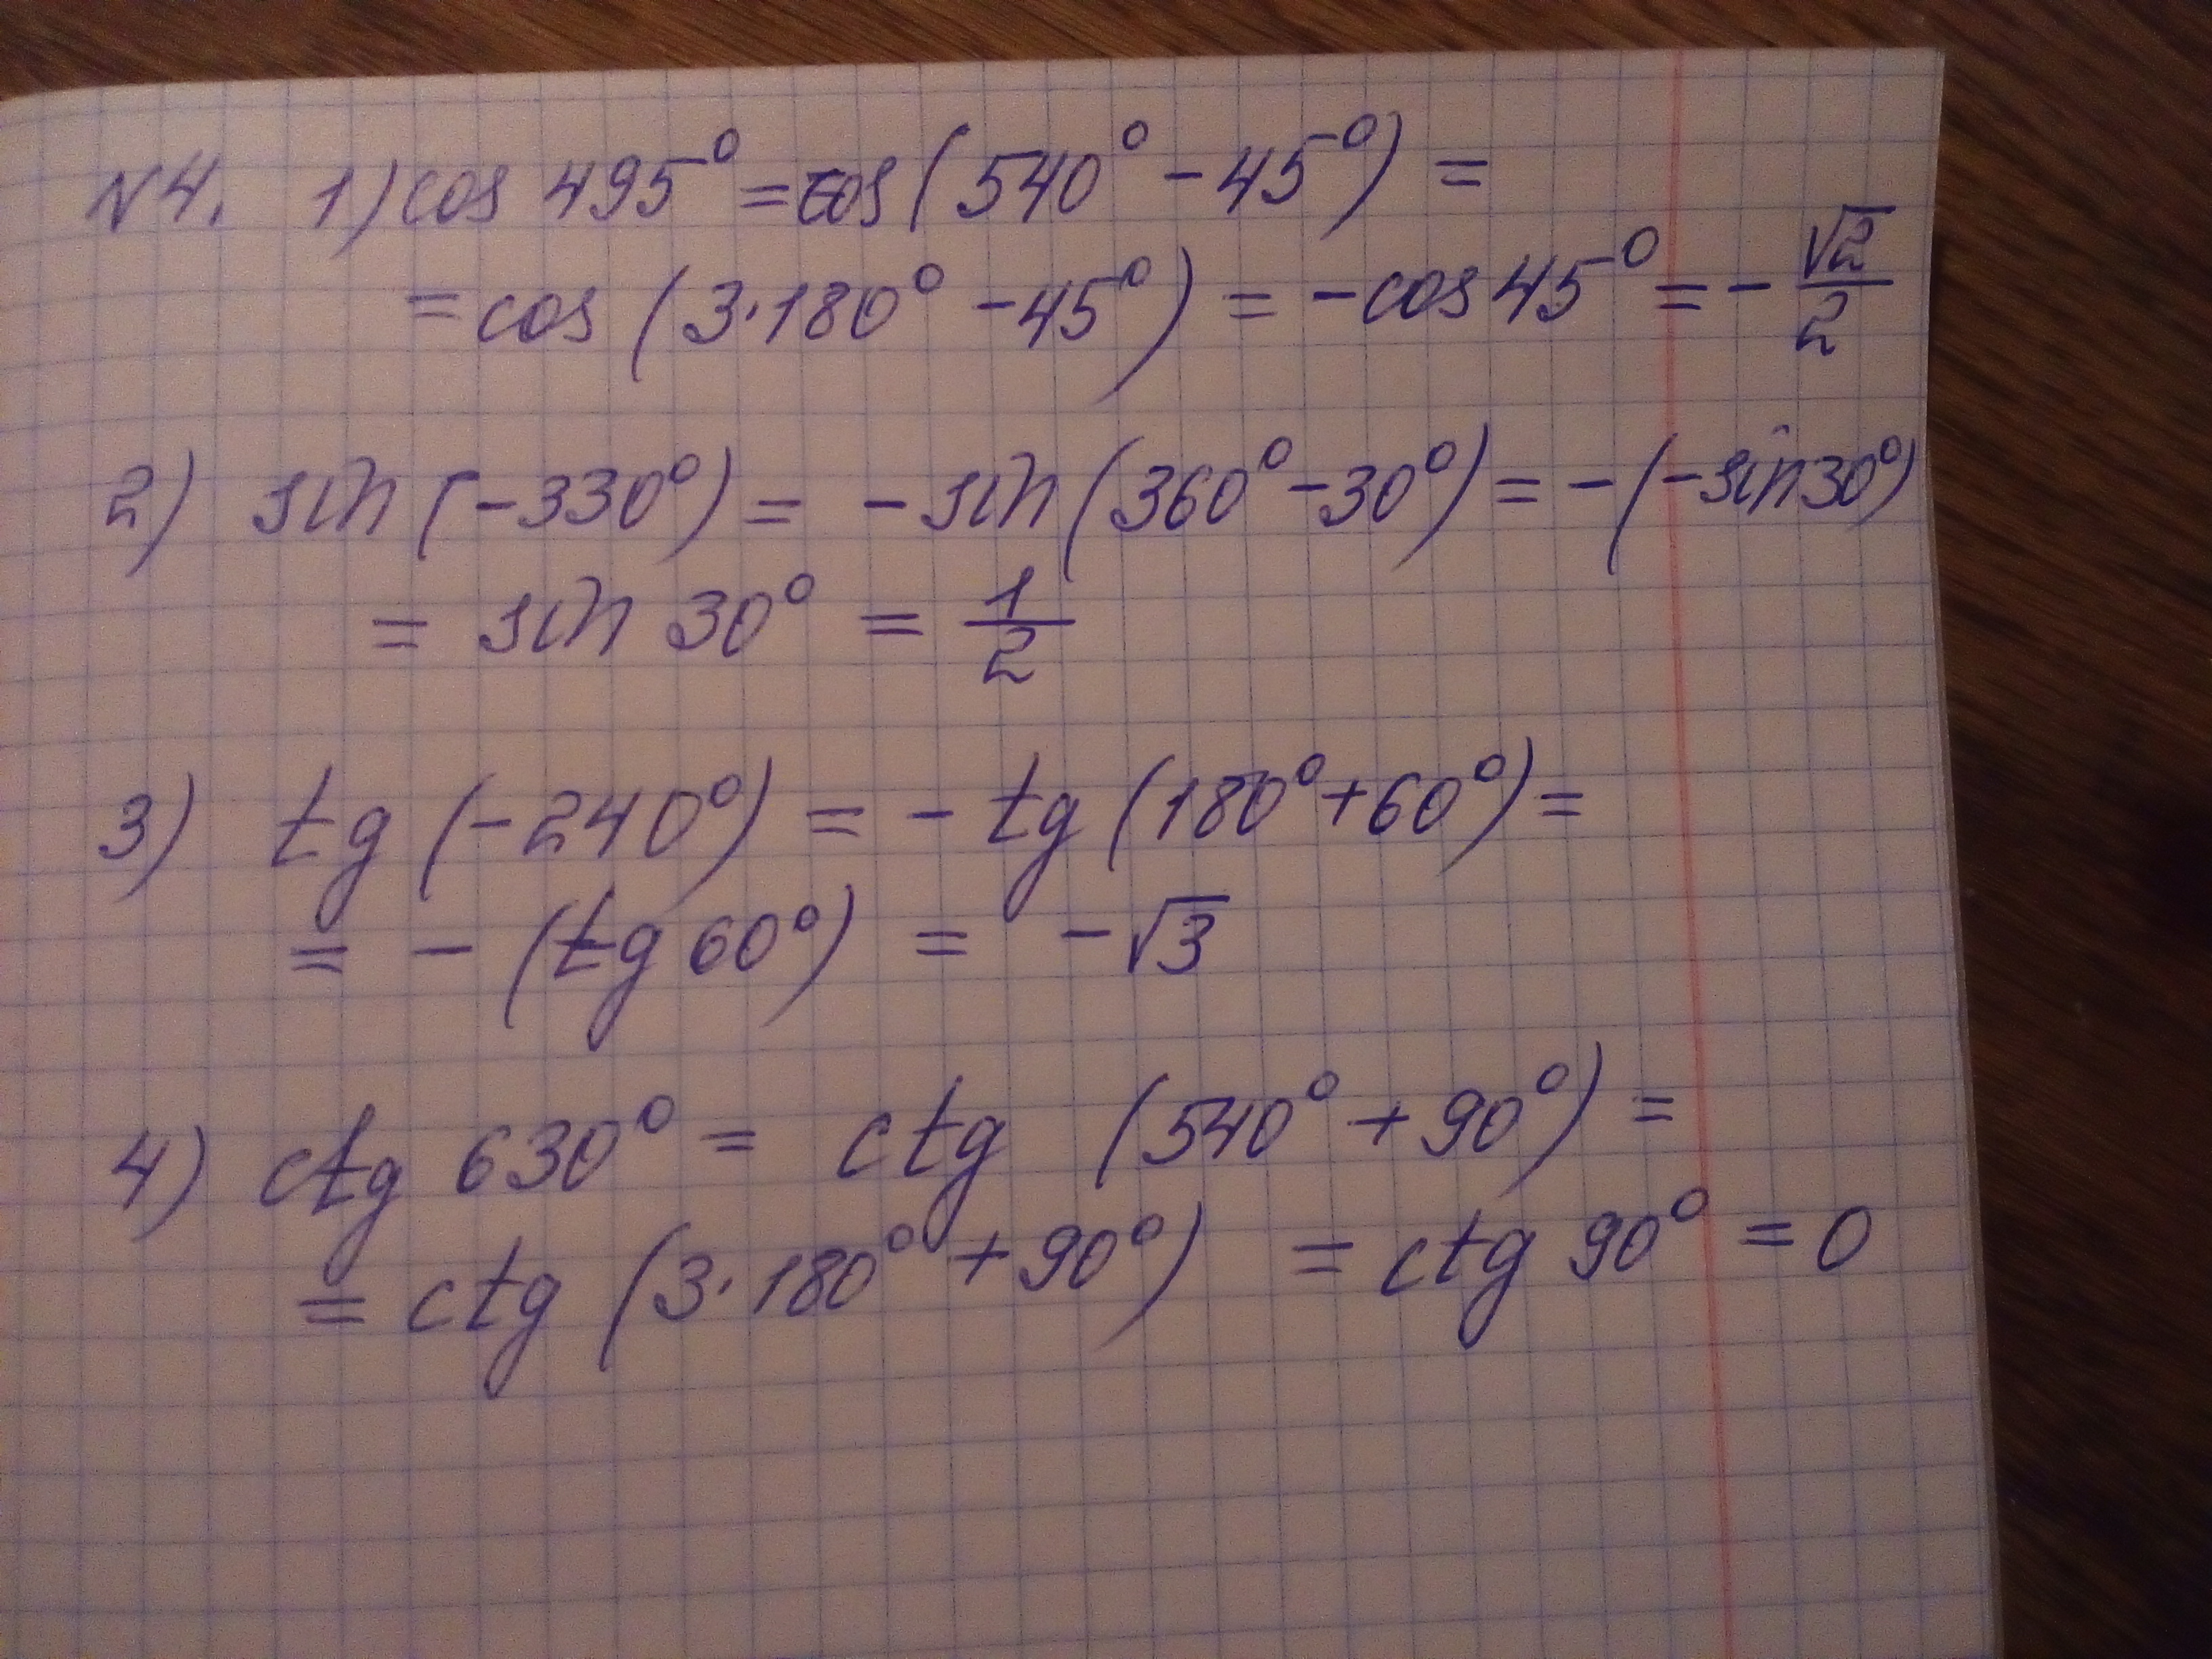 N4. 1) cos 495° = cos (540° - 45°) =
= cos (3·180° - 45°) = - cos 45° = - √2/2
2) sin (-330°) = - sin (360° - 30°) = - (- sin 30°)
= sin 30° = 1/2
3) tg (-240°) = - tg (180° + 60°) =
= - (tg 60°) = - √3
4) ctg 630° = ctg (540° + 90°) =
= ctg (3·180° + 90°) = ctg 90° = 0